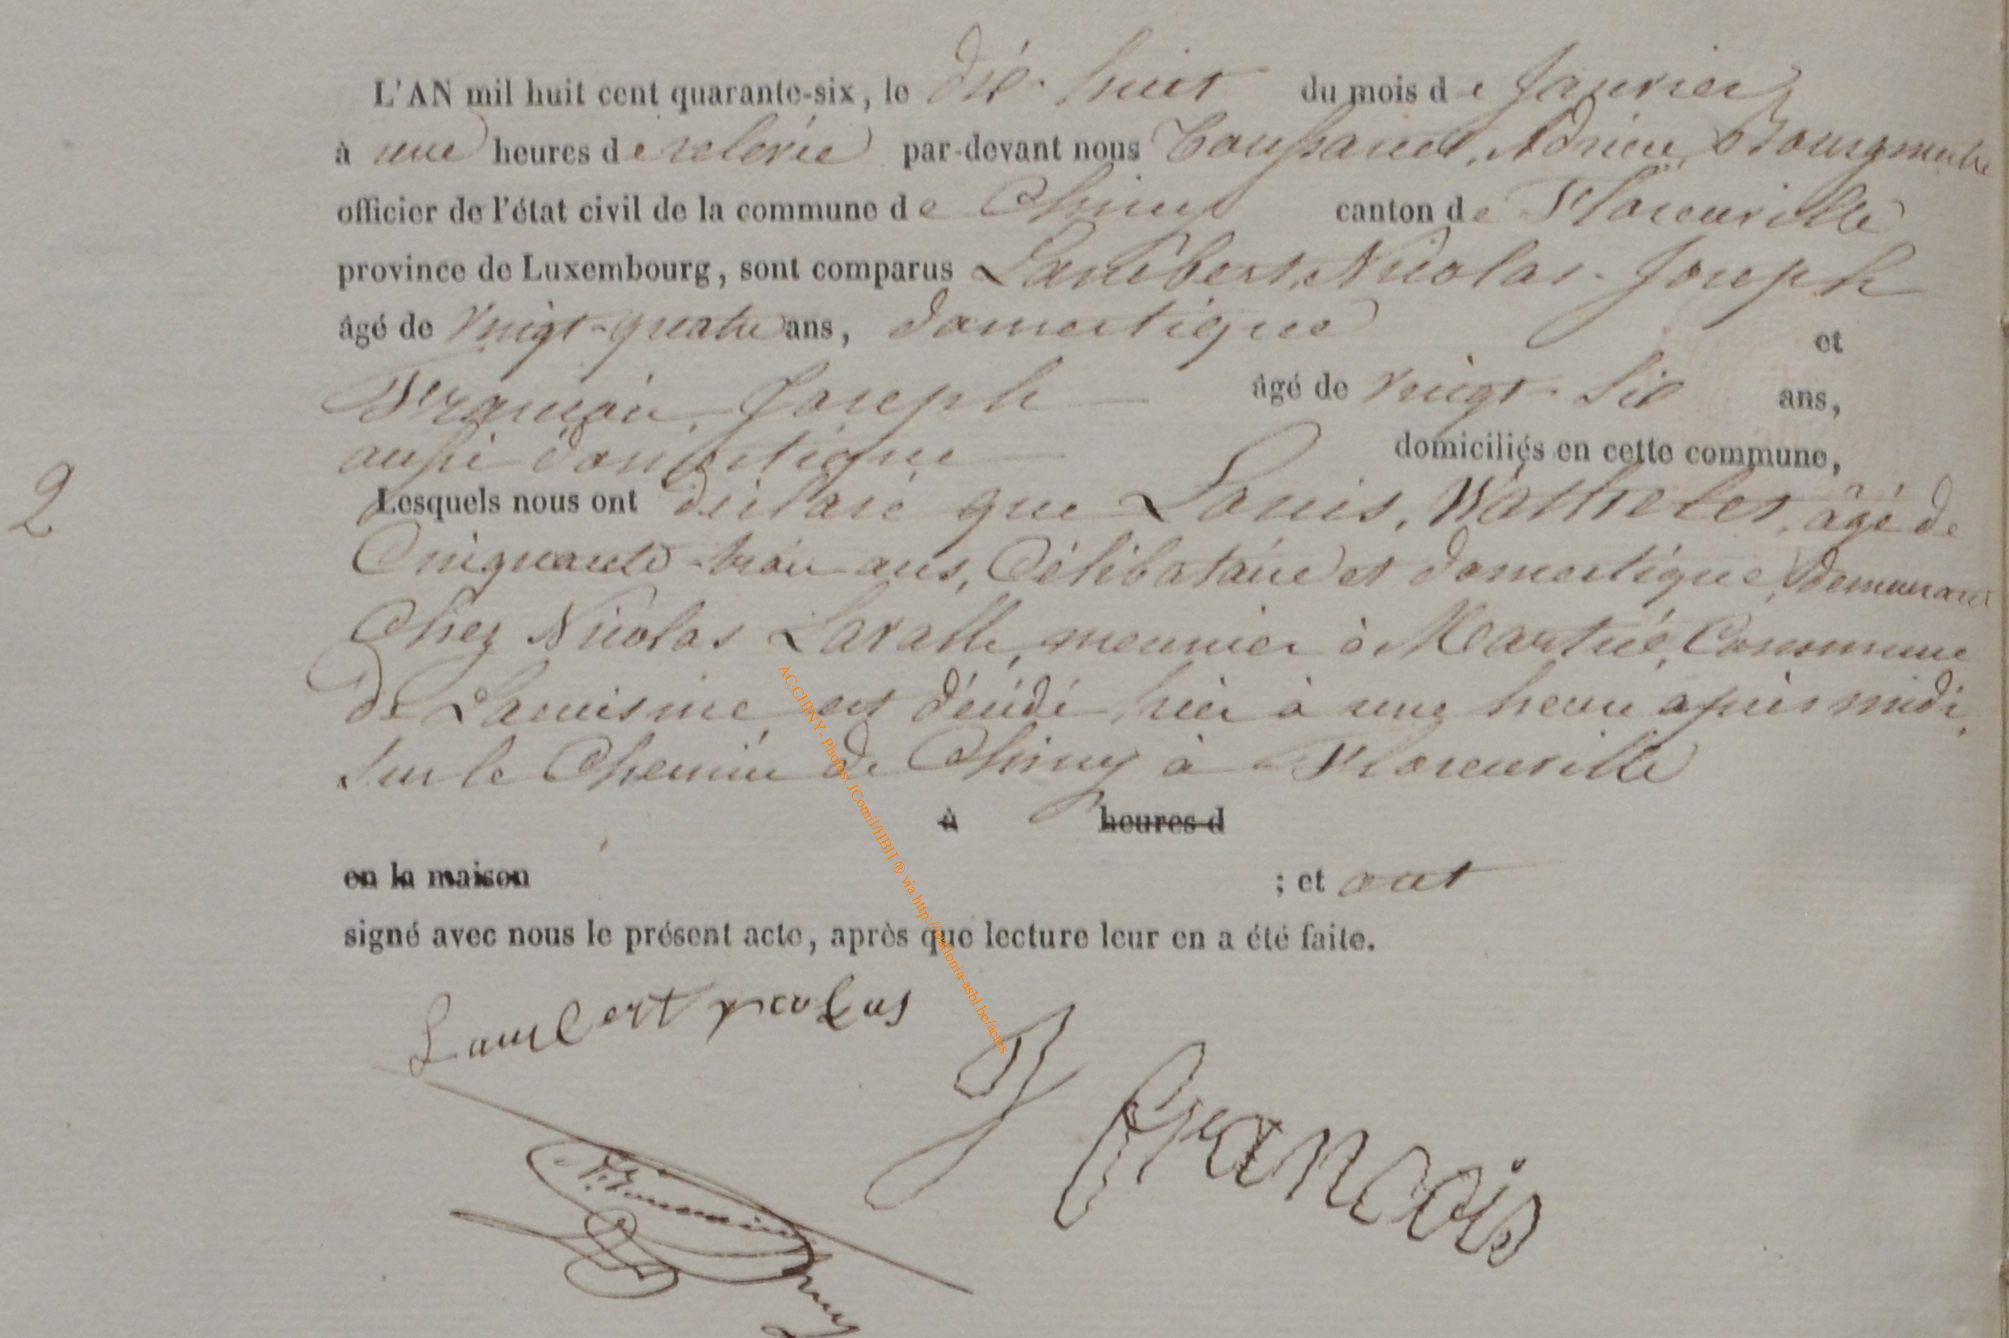 L'AN mil huit cent quarante-six, le dix-huit du mois de Janvier
à une heures de relevée par-devant nous Toussaint, Adrien, Bourgmestre
officier de l'état civil de la commune de Chiny canton de Florenville
province de Luxembourg, sont comparus Lambert, Nicolas-Joseph
âgé de vingt-quatre ans, domestique et
François, Joseph âgé de vingt-six ans,
aussi domestique domiciliés en cette commune,
2
Lesquels nous ont déclaré que Louis, Wathelet, âgé de
Cinquante-trois ans, Célibataire et domestique, demeurant
Chez Nicolas Lavalle, meunier à Martué, Commune
de Lacuisine, est décédé hier à une heure après midi,
sur le Chemin de Chiny à Florenville
à heures d
en la maison ; et ont
signé avec nous le présent acte, après que lecture leur en a été faite.
Lambert nicolas
J francois
AC CHINY - Photos JComil/HBJJ ® via http://